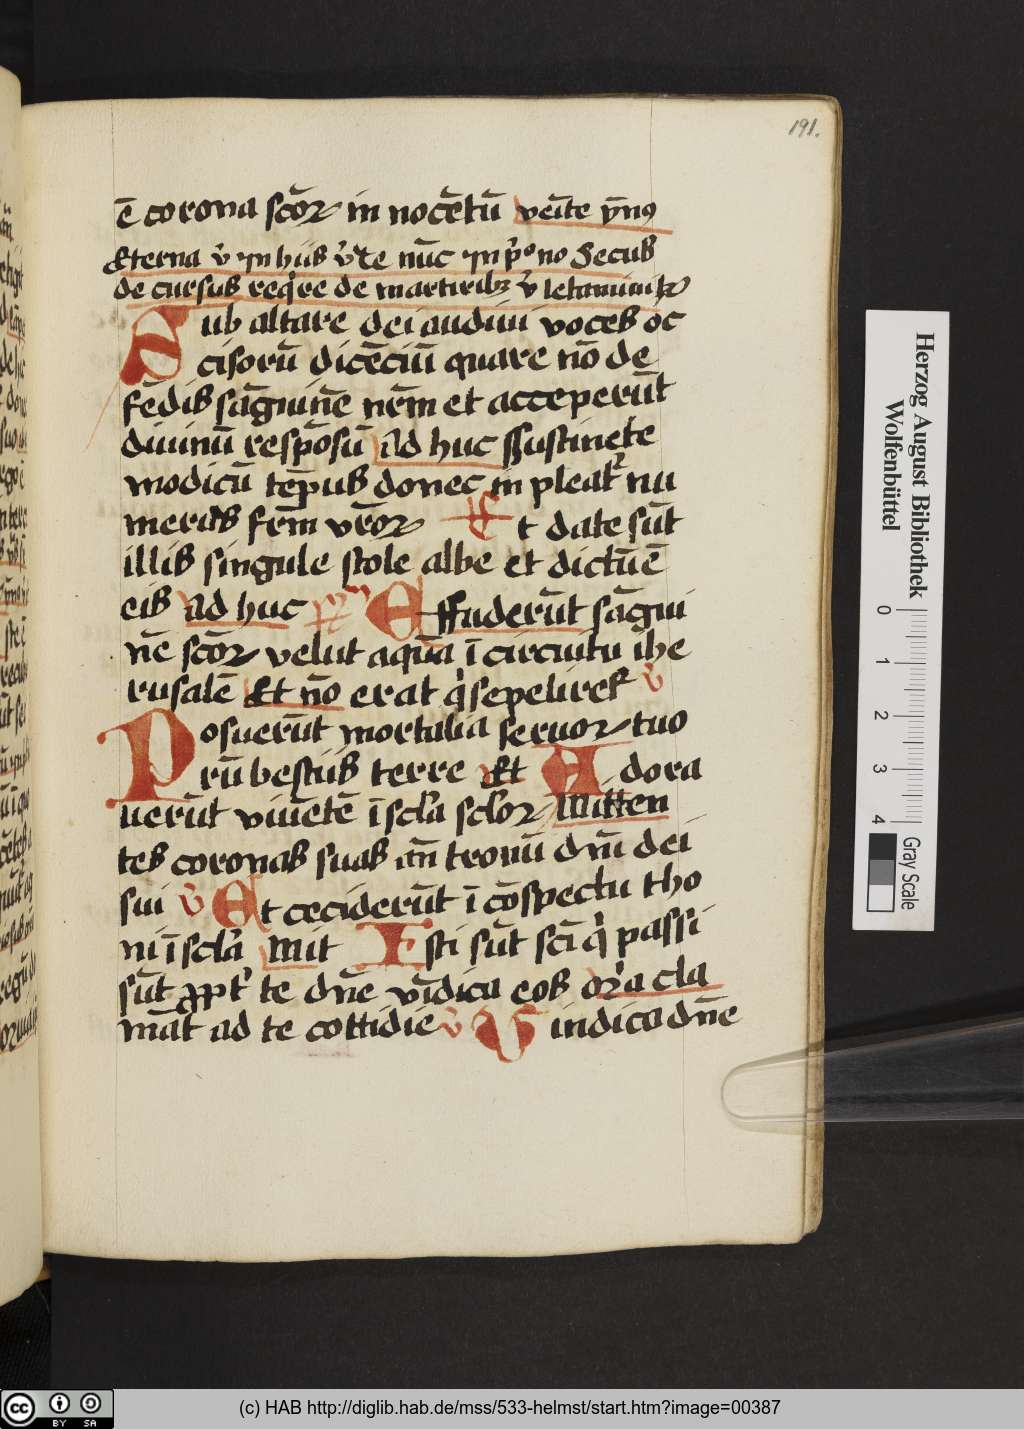 191.
ē corona scōꝝ in nocētū veīte ȳnꝰ
Eterna v̄ in hiis nūc no Secus
de cursus req̄re de martiribꝫ v̄
Sub altare dei audiui voces oc
cisorū dicēciū quare nō de
fēdis sāguinē nr̄m et acceperūt
diuinū respōsū Ad huc sustinete
modicū tēpus donec inpleatr nu
merus fr̄m vr̄oꝝ Et date sūt
illis singule stole albe et dictūē
eis Ad huc Effuderūt sāgui
nē scōꝝ velut aquā ī circuitu ihe
rusalē Et nō erat q̇ sepeliret v̄
Posuerūt mortalia seruoꝝ tuo
rū bestiis terre Et Adora
uerūt viuētē ī scl̄a scl̄oꝝ Mitten
tes coronas suas an̄ tronū dn̄i dei
sui v̄ Et ceciderūt ī cōspectu tho
ni ī scl̄a Mit Isti sūt scī q̇ passi
sūt ꝓpt̄ te dn̄e vīdica eos oꝝa cla
māt ad te cottidie v̄ Vindica dn̄e
Herzog August Bibliothek
Wolfenbüttel
0 1 2 3 4
Gray Scale
(c) HAB http://diglib.hab.de/mss/533-helmst/start.htm?image=00387
cc BY SA